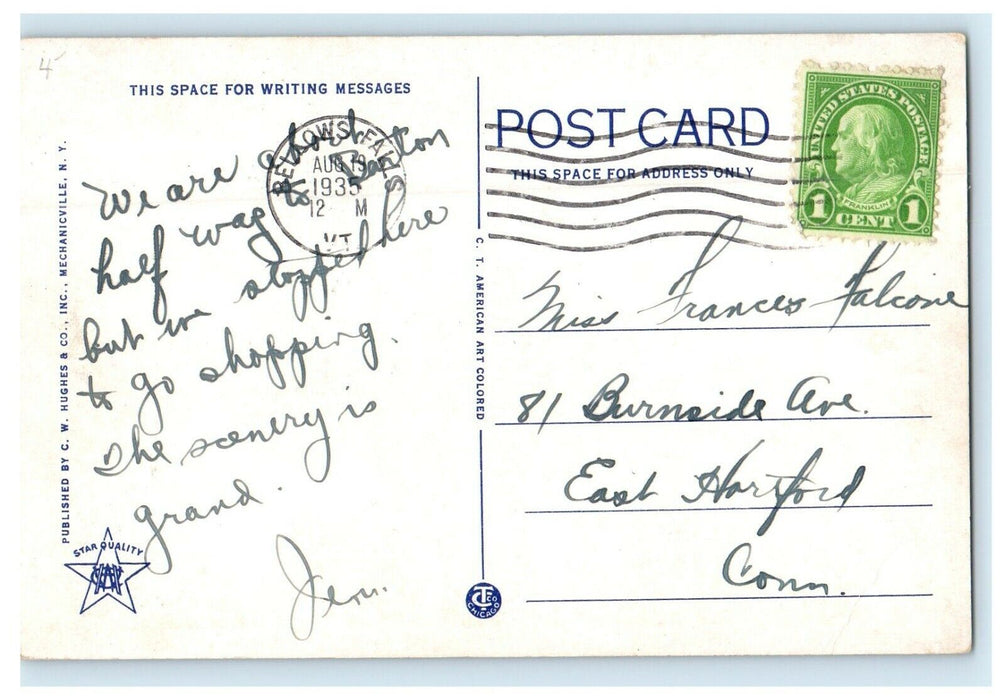 4
THIS SPACE FOR WRITING MESSAGES
We are about
half way to
but we stopped here
to go shopping.
The scenery is
grand.
Jen.
BELLOWS FALLS
AUG 19
1935
12 M
VT.
PUBLISHED BY C. W. HUGHES & CO., INC., MECHANICVILLE, N. Y.
STAR QUALITY
C. T. AMERICAN ART COLORED
CT CO
CHICAGO
POST CARD
THIS SPACE FOR ADDRESS ONLY
UNITED STATES POSTAGE
FRANKLIN
1 CENT 1
Miss Frances Falcone
81 Burnside Ave.
East Hartford
Conn.